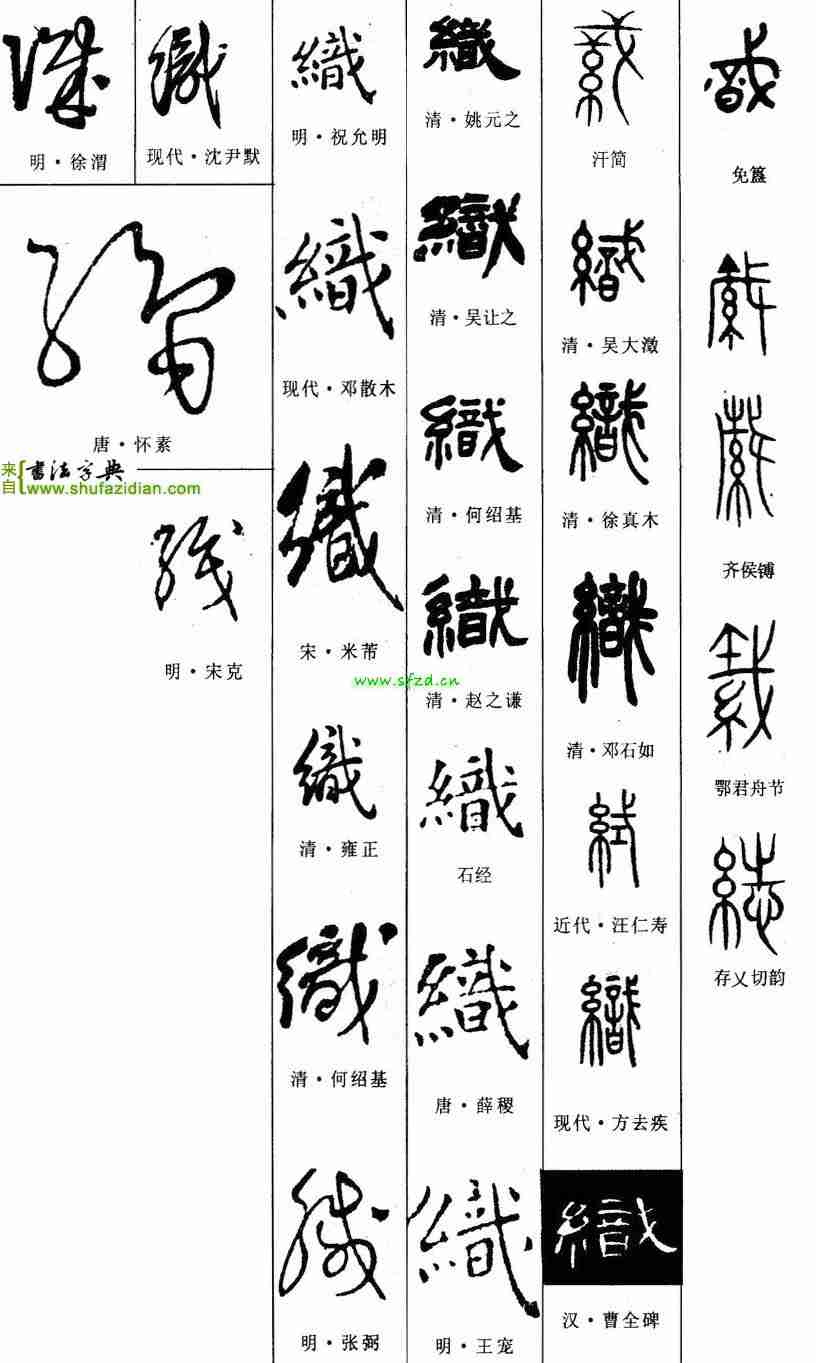 免簠
齐侯镈
鄂君舟节
存乂切韵
汗简
織
清·吴大澂
織
清·徐真木
織
清·邓石如
近代·汪仁寿
織
现代·方去疾
織
汉·曹全碑
織
清·姚元之
織
清·吴让之
織
清·何绍基
織
清·赵之谦
織
石经
織
唐·薛稷
織
明·王宠
織
明·祝允明
織
现代·邓散木
織
宋·米芾
www.sfzd.cn
織
清·雍正
織
清·何绍基
織
明·张弼
織
现代·沈尹默
織
明·徐渭
織
唐·怀素
来自
书法字典
www.shufazidian.com
織
明·宋克